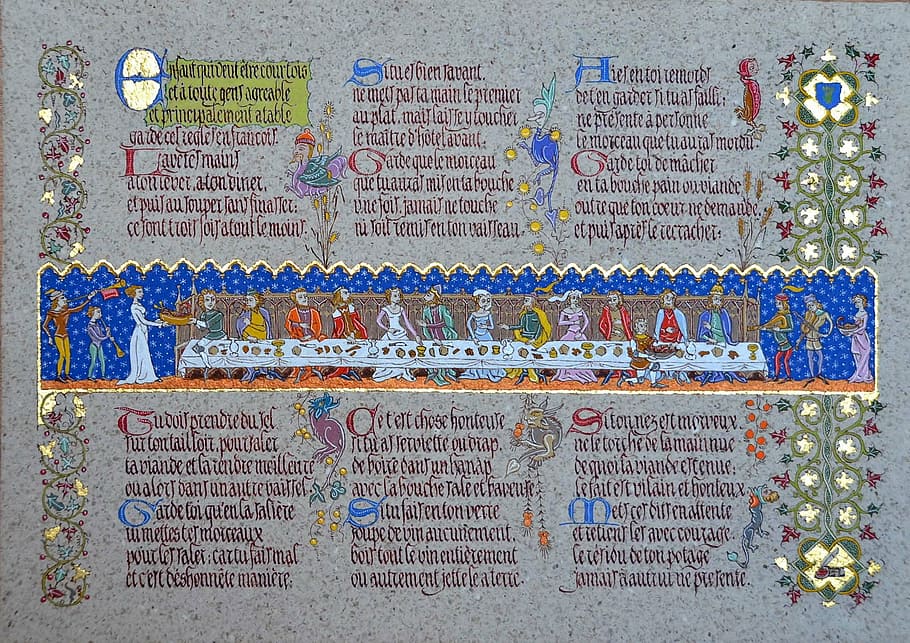 Enfant qui veut être courtois
et à toute gens agreable
et principalement à table
garde ces regles en françois.
Lave tes mains
a ton lever, a ton diner,
et puis au souper sans finasser:
ce sont trois fois a tout le moins.
Si tu es bien savant,
ne mets pas ta main le premier
au plat, mais laisse y toucher
le maître d'hôtel avant.
Garde que le morceau
que tu auras mis en ta bouche
une fois, jamais ne touche
ni soit remis en ton vaisseau.
Aies en toi remords
de t'en garder si tu as failli:
ne présente à personne
le morceau que tu auras mordu.
Garde toi de mâcher
en ta bouche pain ou viande
outre que ton coeur ne demande,
et puis après le recracher.
Tu dois prendre du sel
sur ton tailloir, pour saler
ta viande et la rendre meilleure
ou alors dans un autre vaissel.
Garde toi, qu'en la salière
tu mettes tes morceaux
pour les saler, car tu fais mal
et c'est déshonnête manière.
Ce t'est chose honteuse
si tu as serviette ou drap,
de boire dans un hanap
avec la bouche sale et baveuse.
Si tu fais en ton verre
soupe de vin aucunement,
bois tout le vin entièrement
ou autrement jette le a terre.
Si ton nez est morveux,
ne le torche de la main nue
de quoi ta viande est tenue:
le fait est vilain et honteux
Mets ces dits en attente
et retiens les avec courage
le résidu de ton potage
jamais à autrui ne présente.